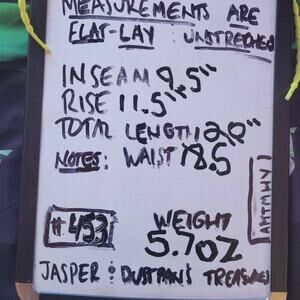 MEASUREMENTS ARE
FLAT-LAY UNSTRETCHED
INSEAM 9.5"
RISE 11.5"
TOTAL LENGTH 20"
NOTES: WAIST 18.5
AHTMHY
#453
WEIGHT
5.7OZ
JASPER & DUSTPAN'S TREASURES